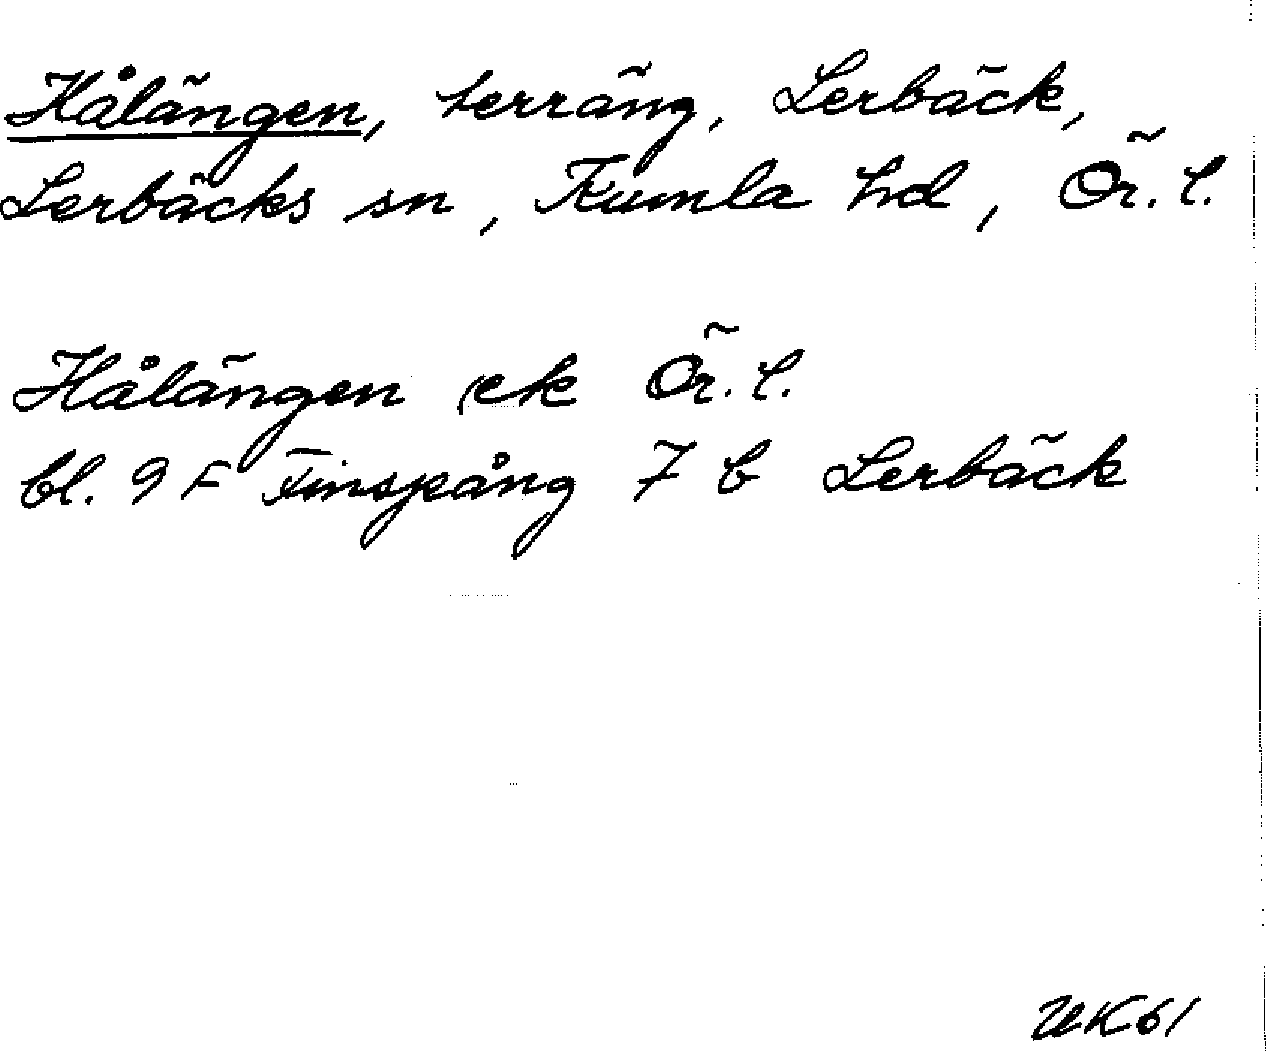 Hålängen, terräng, Lerbäck,
Lerbäcks sn, Kumla hd, Ör. l.
Hålängen ek Ör. l.
bl. 9 F Finspång 7 b Lerbäck
UK61